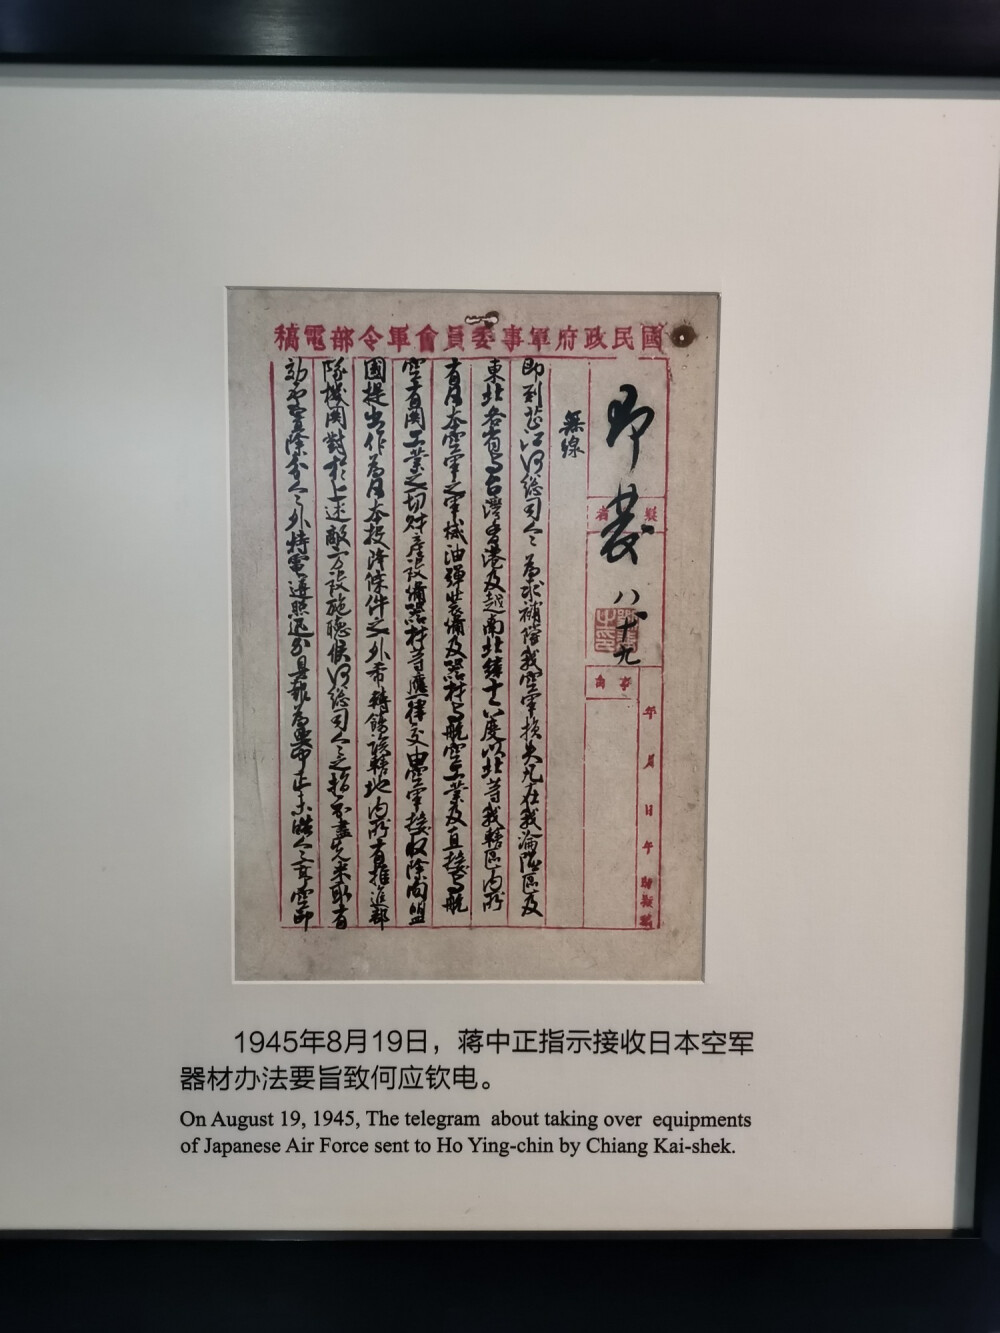 國民政府軍事委員會軍令部電稿
即發
八十九
無線
即到芷江何總司令 為求補償我空軍損失凡在我淪陷區及
東北各省與台灣香港及越南北緯十六度以北等我轄區內所
有日本空軍之軍械油彈裝備及器材與航空工業及直接與航
空有關工業之一切財產設備器材等應一律交由空軍接收除向盟
國提出作為日本投降條件之外希轉飭該轄地內所有推進部
隊機關對於上述敵方設施聽候何總司令之指示盡先
除分令外特電遵照
年 月 日 午 時
1945年8月19日，蒋中正指示接收日本空军
器材办法要旨致何应钦电。
On August 19, 1945, The telegram about taking over equipments
of Japanese Air Force sent to Ho Ying-chin by Chiang Kai-shek.